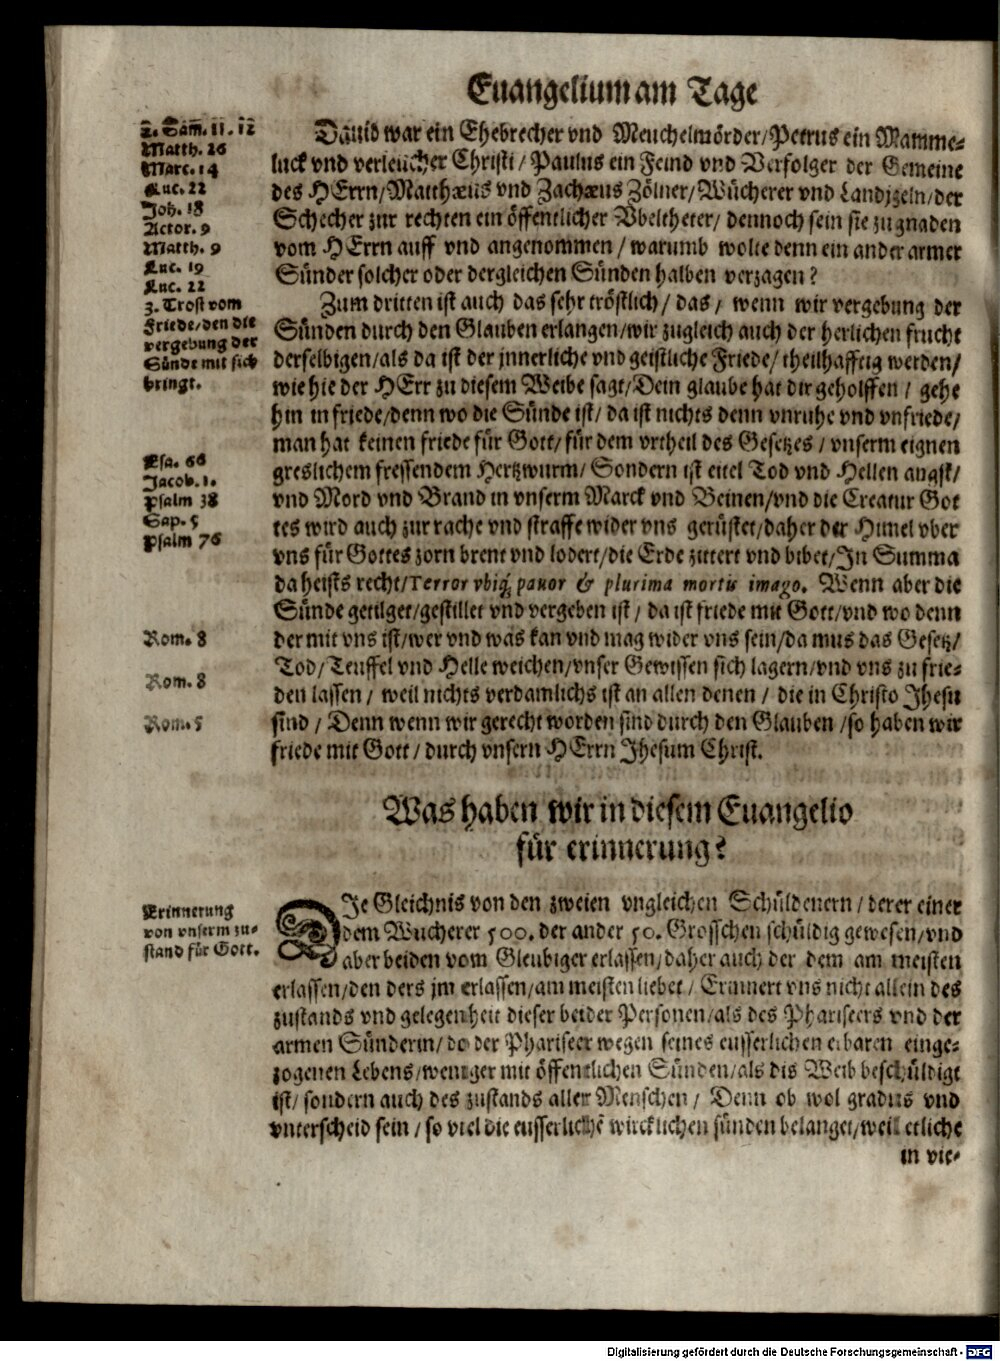 Euangelium am Tage
2. Sam. 11. 12
Matth. 26
Marc. 14
Luc. 22
Joh. 18
Actor. 9
Matth. 9
Luc. 19
Luc. 22
3. Trost vom
Friede/den die
vergebung der
Sünde mit sich
bringt.
Esa. 66
Jacob. 1.
Psalm 38
Sap. 5
Psalm 76
Rom. 8
Rom. 8
Rom. 5
Dauid war ein Ehebrecher vnd Meuchelmörder/Petrus ein Mamme-
luck vnd verleucher Christi/Paulus ein Feind vnd Verfolger der Gemeine
des HErrn/Matthæus vnd Zachæus Zölner/Wücherer vnd Landzzeln/der
Schecher zur rechten ein öffentlicher Vbeltheter/dennoch sein sie zu gnaden
vom HErrn auff vnd angenommen/warumb wolte denn ein ander armer
Sünder solcher oder dergleichen Sünden halben verzagen?
Zum dritten ist auch das sehr tröstlich/das/wenn wir vergebung der
Sünden durch den Glauben erlangen/wir zugleich auch der herlichen frucht
derselbigen/als da ist der jnnerliche vnd geistliche Friede/theilhafftig werden/
wie hie der HErr zu diesem Weibe sagt/Dein glaube hat dir geholffen/gehe
hin in friede/denn wo die Sünde ist/da ist nichts denn vnruhe vnd vnfriede/
man hat keinen friede für Gott/für dem vrtheil des Gesetzes/vnserm eignen
greslichem fressendem Hertzwurm/Sondern ist eitel Tod vnd Hellen angst/
vnd Mord vnd Brand in vnserm Marck vnd Beinen/vnd die Creatur Got
tes wird auch zur rache vnd straffe wider vns gerüstet/daher der Himel vber
vns für Gottes zorn brent vnd lodert/die Erde zittert vnd bibet/In Summa
da heists recht/Terror vbiq́; pauor & plurima mortis imago. Wenn aber die
Sünde getilget/gestillet vnd vergeben ist/da ist friede mit Gott/vnd wo denn
der mit vns ist/wer vnd was kan vnd mag wider vns sein/da mus das Gesetz/
Tod/Teuffel vnd Helle weichen/vnser Gewissen sich lagern/vnd vns zu frie-
den lassen/weil nichts verdamlichs ist an allen denen/die in Christo Jhesu
sind/Denn wenn wir gerecht worden sind durch den Glauben/so haben wir
friede mit Gott/durch vnsern HErrn Jhesum Christ.
Was haben wir in diesem Euangelio
für erinnerung?
Erinnerung
von vnserm zu-
stand für Gott.
DJe Gleichnis von den zweien vngleichen Schüldenern/derer einer
dem Wucherer 500. der ander 50. Grosschen schüldig gewesen/vnd
aber beiden vom Gleubiger erlassen/daher auch der dem am meisten
erlassen/den ders jm erlassen/am meisten liebet/Erinnert vns nicht allein des
zustands vnd gelegenheit dieser beider Personen/als des Phariseers vnd der
armen Sünderin/do der Phariseer wegen seines eusserlichen erbaren einge-
zogenen Lebens/weniger mit öffentlichen Sünden/als dis Weib beschüldigt
ist/sondern auch des zustands aller Menschen/Denn ob wol gradus vnd
vnterscheid sein/so viel die eusserlichē wircklichen sünden belanget/weil etliche
in vie-
Digitalisierung gefördert durch die Deutsche Forschungsgemeinschaft - DFG